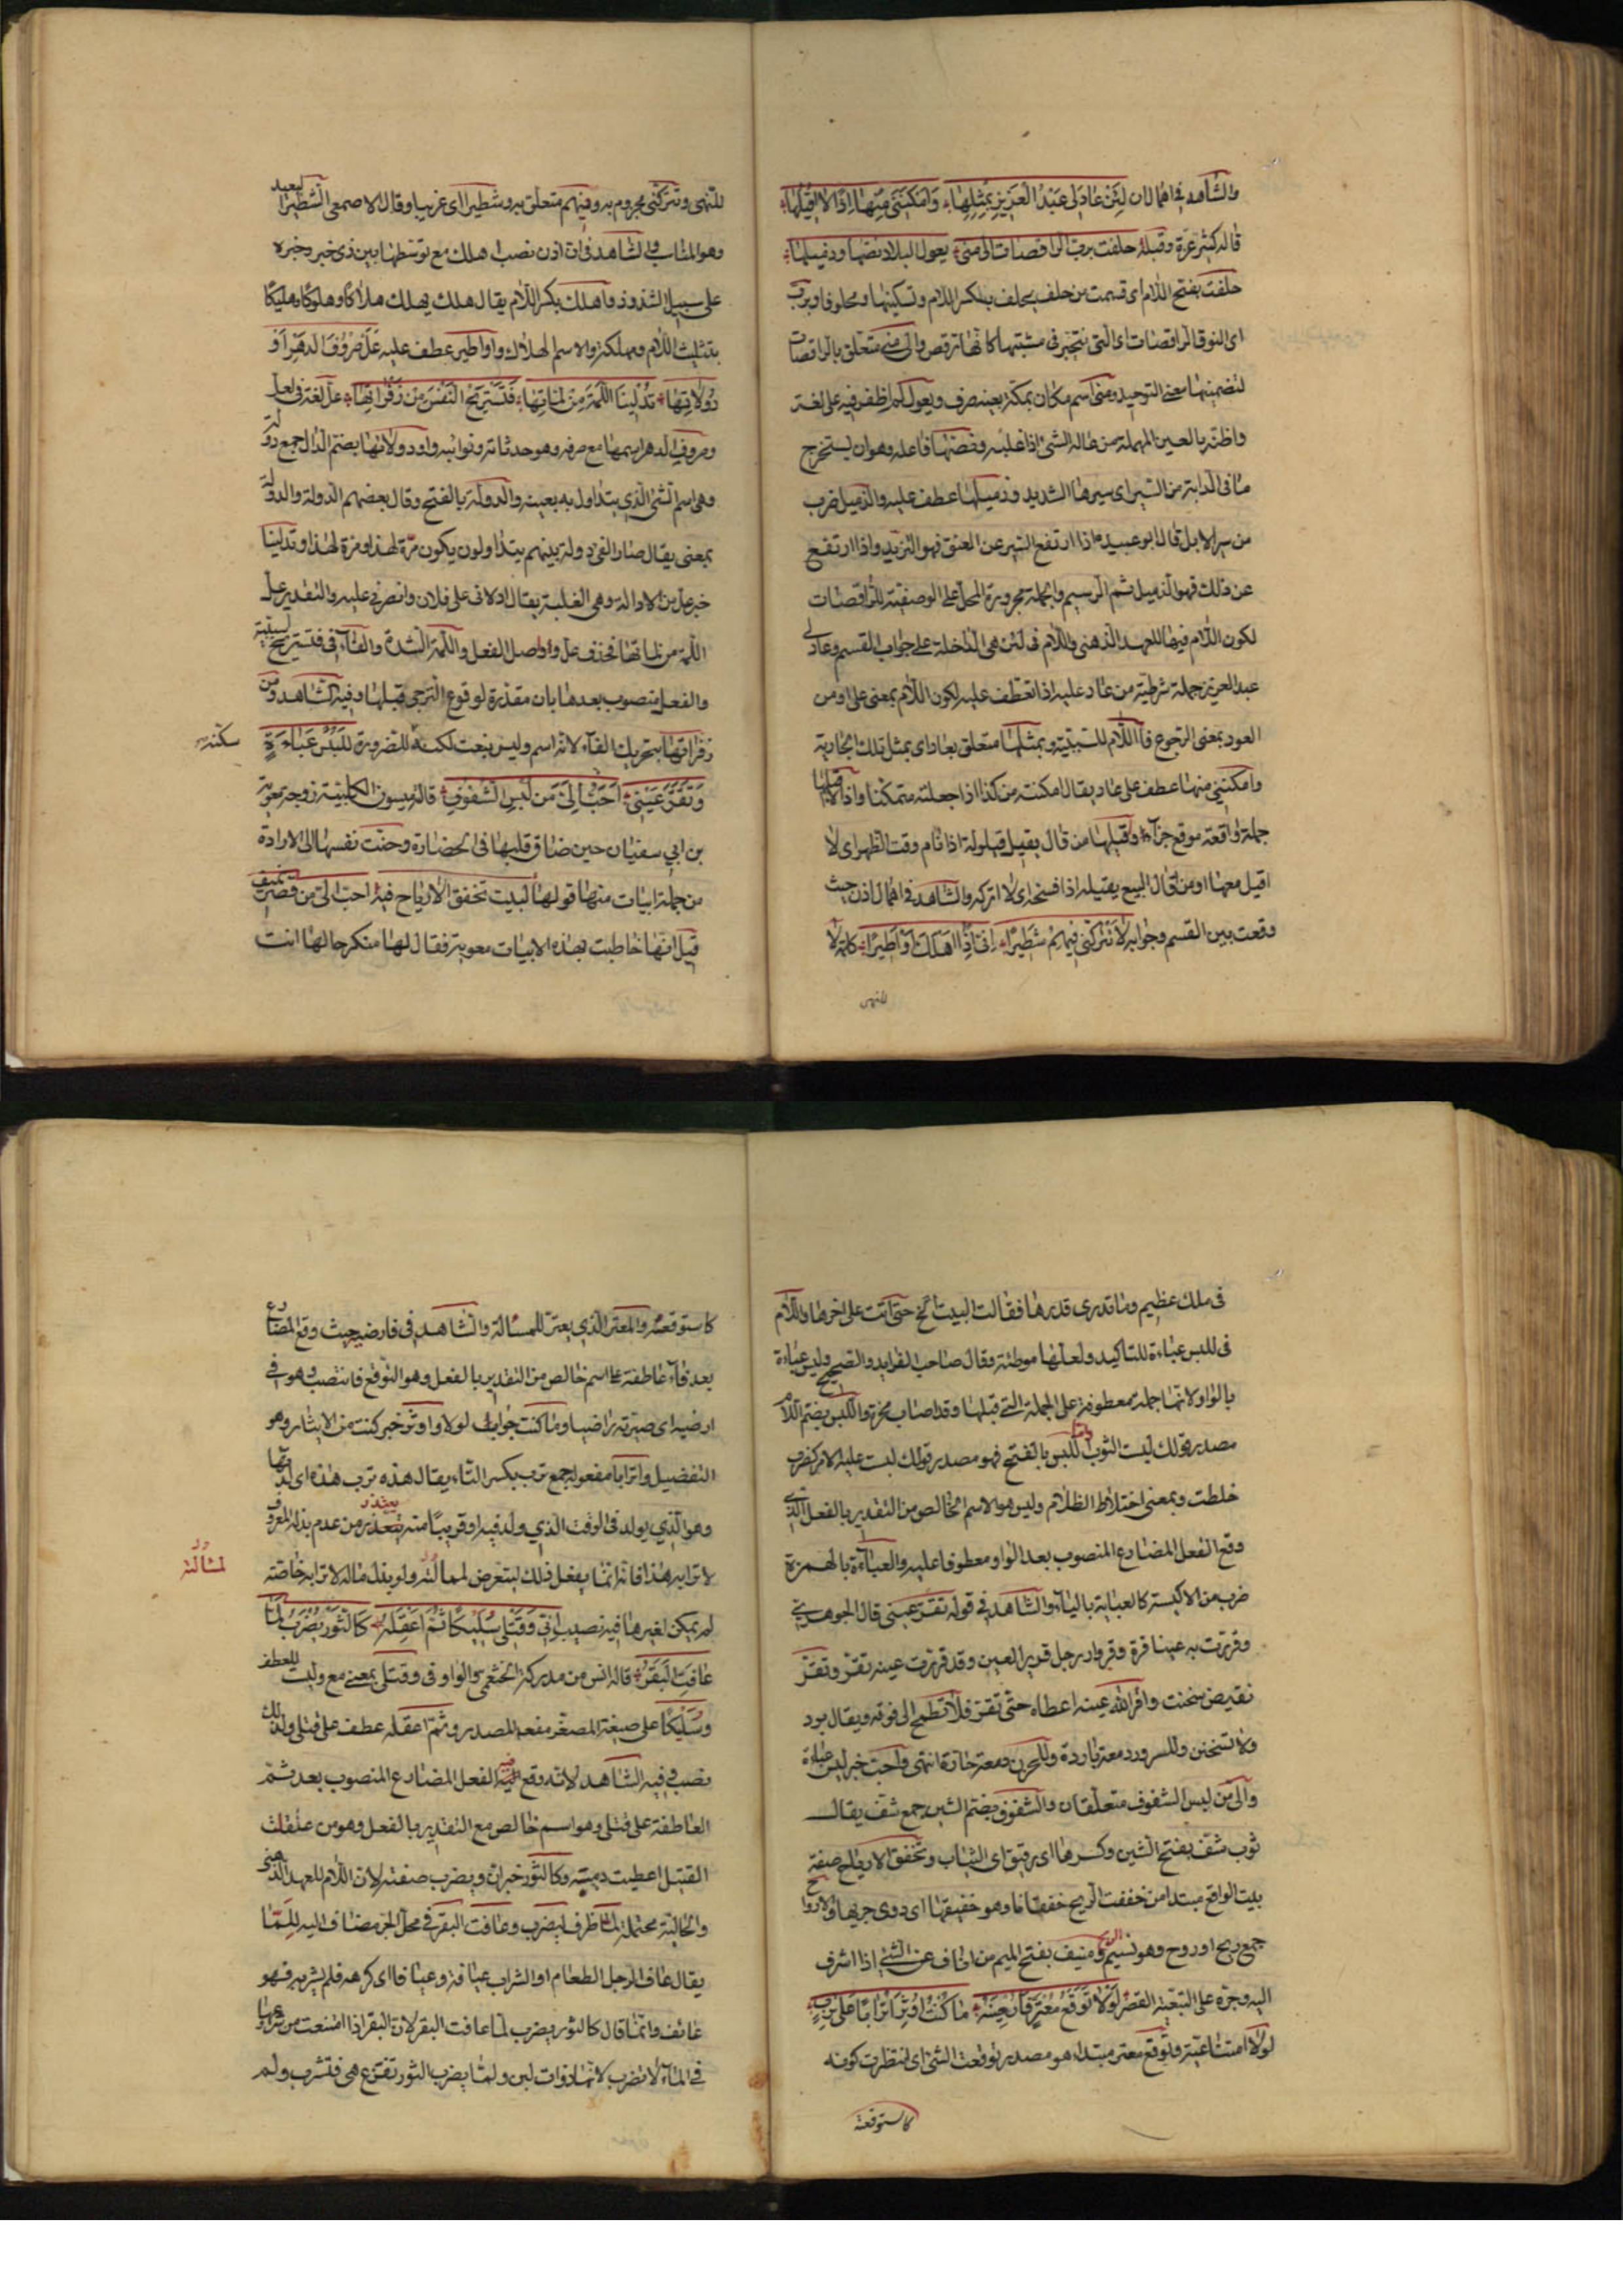 والشاهد في اهمال ان لَئِنْ عَادَ لِي عَبْدُ الْعَزِيزِ بِمِثْلِهَا وَاَمْكَنَنِي مِنْهَا اِذًا لَا اُقِيلُهَا
قاله كثير عزة وقبله حلفت برب الراقصات الى منى يعول البلاد نصها وذميلها
حلفت بفتح اللام اى قسمت من حلف يحلف بكسر اللام وتسكينها ومحلوفا وبرب
اى النوق الراقصات اى التي تتبختر في مشيتها كانها ترقص والى منى متعلق بالراقصات
لتضمينها معنى التوجيه ومنى اسم مكان بمكة بعينه صرف ويعول كما ظفر فيه على لغة
واظنه بالعين المهملة من عاله الشئ اذا غلبه ونصها فاعله وهو ان يستخرج
ما في الدابة من السير اى سيرها الشديد وذميلها عطف عليه والذميل ضرب
من سير الابل قال ابو عبيد اذا ارتفع السير عن العنق فهو التزيد واذا ارتفع
عن ذلك فهو الذميل ثم الرسيم والجملة مجرورة المحل على الوصفية للراقصات
لكون اللام فيها للعهد الذهنى واللام في لئن هي الداخلة على جواب القسم وعاد لي
عبد العزيز جملة شرطية من عاد عليه اذا تعطف عليه لكون اللام بمعنى على او من
العود بمعنى الرجوع فاللام للتبيينية وبمثلها متعلق بعاد اى بمثل تلك الجارية
وامكننى منها عطف على عاد يقال امكنته من كذا اذا جعلته متمكنا واذا لا اقيلها
جملة واقعة موقع جزاء واقيلها من قال يقيل قيلولة اذا نام وقت الظهر اى لا
اقيل معها او من اقال البيع يقيله اذا فسخه اى لا اتركه والشاهد في اهمال اذن حيث
وقعت بين القسم وجوابه لَا تَتْرُكَنِّي فِيهِمْ شَطِيرًا اِنِّي اِذًا اَهْلِكَ اَوْ اَطِيرَا كلمة لا
للنهى
للنهى وتتركنى مجزوم به وفيهم متعلق به وشطيرا اى غريبا وقال الاصمعى الشطير البعيد
وهو المناسب والشاهد في ان اذن نصب اهلك مع توسطها بين ذى خبر وخبره
على سبيل الشذوذ واهلك بكسر اللام يقال هلك يهلك هلاكا وهلوكا وهليكا
بتثليث اللام ومهلكة والاسم الهلاك واواطير عطف عليه عَلَّ صُرُوفَ الدَّهْرِ اَوْ
دُولَاتِهَا تُدِلْنَنَا اللَّمَّةَ مِنْ لَمَّاتِهَا فَتَسْتَرِيحَ النَّفْسُ مِنْ زَفْرَاتِهَا عل لغة في لعل
وصروف الدهر اسمها مع صرفه وهو حدثانه ونوائبه واو دولاتها بضم الدال جمع دولة
وهي اسم الشئ الذي يتداول به بعينه والدولة بالفتح وقال بعضهم الدولة والدولة
بمعنى يقال صار الفئ دولة بينهم يتداولون يكون مرة لهذا ومرة لهذا وتدلينا
خبر عل من الادالة وهي الغلبة يقال ادلانى على فلان وانصرني عليه والتقدير عل
اللمة من لماتها فحذف عل واوصل الفعل واللمة الشدة والفاء في فتستريح لسببية
والفعل منصوب بعدها بان مقدرة لوقوع الترجى قبلها وفيه الشاهد ومن
زفراتها بتحريك الفاء لانه اسم وليس بنعت لكنه للضرورة لَلُبْسُ عَبَاءَةٍ
سكنه
وَتَقَرَّ عَيْنِي اَحَبُّ اِلَيَّ مِنْ لُبْسِ الشُّفُوفِ قالته ميسون الكلبية زوجة معوية
بن ابي سفيان حين ضاق قلبها في الحضارة وحنت نفسها الى الارادة
من جملة ابيات منها قولها لبيت تخفق الارياح فيه احب الي من قصر منيف
قيل انها خاطبت بهذه الابيات معوية فقال لها منكر حالها انت
في ملك عظيم وما تدرى قدرها فقالت لبيت الخ حتى اتت على اخرها واللام
في للبس عباءة للتاكيد ولعلها موطئة وقال صاحب الفرايد والصحيح ولبس عباءة
بالواو لانها جملة معطوفة على الجملة التي قبلها وقد اصاب محزه واللبس بضم اللام
مصدر قولك لبست الثوب واما اللبس بالفتح فهو مصدر قولك لبست عليه الامر كضرب
خلطت وبمعنى اختلاط الظلام وليس هو الاسم الخالص من التقدير بالفعل الذي
وقع الفعل المضارع المنصوب بعد الواو معطوفا عليه والعباءة بالهمزة
ضرب من الاكسية كالعباية بالياء والشاهد في قوله تقر عينى قال الجوهرى
وقررت به عينا قرة وقرورا ورجل قرير العين وقد قررت عينه تقر وتقر
نقيض سخنت واقر الله عينه اعطاه حتى تقر فلا تطمح الى فوقه ويقال برد
ولا تسخنن وللسرور دمعة باردة وللحزن دمعة حارة انتهى واحب خبر لبس عباءة
والى من لبس الشفوف متعلقان والشفوف بضم الشين جمع شف يقال
ثوب شف بفتح الشين وكسرها اى رقيق اى الثياب وتخفق الارياح صفة
بيت الواقع مبتدا من خفقت الريح خفقانا وهو خفيقها اى دوى جريها والارواح
جمع ريح او روح وهو نسيم الريح ومنيف بفتح الميم من اناف عن الشئ اذا اشرف
اليه وجره على التبعية القصر لَوْلَا تَوَقُّعُ مُعْتَرٍّ فَاُرْضِيَهُ مَا كُنْتُ اُوثِرُ اَتْرَابًا عَلَى تِرْبِ
لولا امتناعية وتوقع معتر مبتدا وهو مصدر توقعت الشئ اى انتظرت كونه
كاستوقعته
كاستوقعته والمعتر الذي يعتر للمسالة والشاهد في فارضيه حيث وقع المضارع
بعد فاء عاطفة على اسم خالص من التقدير بالفعل وهو التوقع فانتصب وهو في
ارضيه اى صيرته راضيا وما كنت جواب لولا واوثر خبر كنت من الايثار وهو
التفضيل واترابا مفعوله جمع ترب بكسر التاء يقال هذه ترب هذه اى لدتها
وهو الذي يولد في الوقت الذي ولد فيه او قريبا منه يعتذر من عدم بذله المعروف
لاترابه هذا فانه انما يفعل ذلك ليتعرض لمسالته ولو بذل ماله لاترابه خاصة
لمسالته
لم يمكن لغيرها فيه نصيب اِنِّي وَقَتْلِي سُلَيْكًا ثُمَّ اَعْقِلَهُ كَالثَّوْرِ يُضْرَبُ لَمَّا
عَافَتِ الْبَقَرُ قاله انس من مدركة الخثعمى والواو في وقتلى بمعنى مع وليست للعطف
وسليكا على صيغة المصغر مفعول المصدر وثم اعقله عطف على قتلى ولذلك
نصب وفيه الشاهد لانه وقع فيه الفعل المضارع المنصوب بعد ثم
العاطفة على قتلى وهو اسم خالص مع التقدير بالفعل وهو من عقلت
القتيل اعطيت ديته وكالثور خبر ان ويضرب صفته لان اللام للعهد الذهنى
والحالية محتملة لما ظرف ليضرب وعافت البقر في محل الجر مضاف اليه للما
يقال عاف الرجل الطعام او الشراب عيافة وعيافا اى كرهه فلم يشربه فهو
عائف وانما قال كالثور يضرب لما عافت البقر لان البقر اذا امتنعت من شرابها
في الماء لا تضرب لانها ذوات لبن ولما يضرب الثور تفزع هي فتشرب ولم